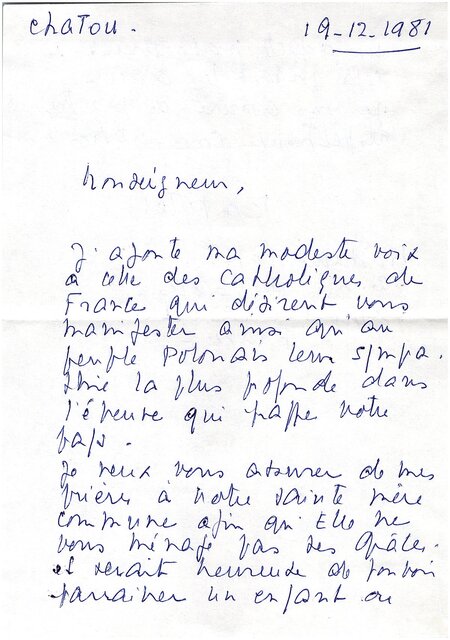 Chatou. 19-12-1981
Monseigneur,
J'ajoute ma modeste voix
à celle des Catholiques de
France qui désirent vous
manifester ainsi qu'au
peuple Polonais leur sympa.
thie la plus profonde dans
l'épreuve qui frappe votre
pays.
Je veux vous assurer de mes
prières à notre sainte mère
commune afin qu'Elle ne
vous ménage pas ses grâces.
et serait heureuse de pouvoir
parrainer un enfant ou